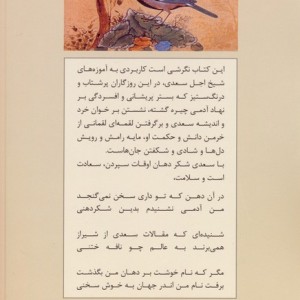 این کتاب نگرشی است کاربردی به آموزه‌های
شیخ اجل سعدی، در این روزگاران پرشتاب و
درنگ‌ستیز که بستر پریشانی و افسردگی بر
نهاد آدمی چیره گشته، نشستن بر خوان خرد
و اندیشه سعدی و برگرفتن لقمه‌ای لقمانی از
خرمن دانش و حکمت او، مایه رامش و رویش
دل‌ها و شادی و شکفتن جان‌هاست.
با سعدی شکر دهان اوقات سپردن، سعادت
است و سلامت،
در آن دهن که تو داری سخن نمی‌گنجد
من آدمی نشنیدم بدین شکردهنی
شنیده‌ای که مقالات سعدی از شیراز
همی‌برند به عالم چو نافه ختنی
مگر که نام خوشت بر دهان من بگذشت
برفت نام من اندر جهان به خوش سخنی